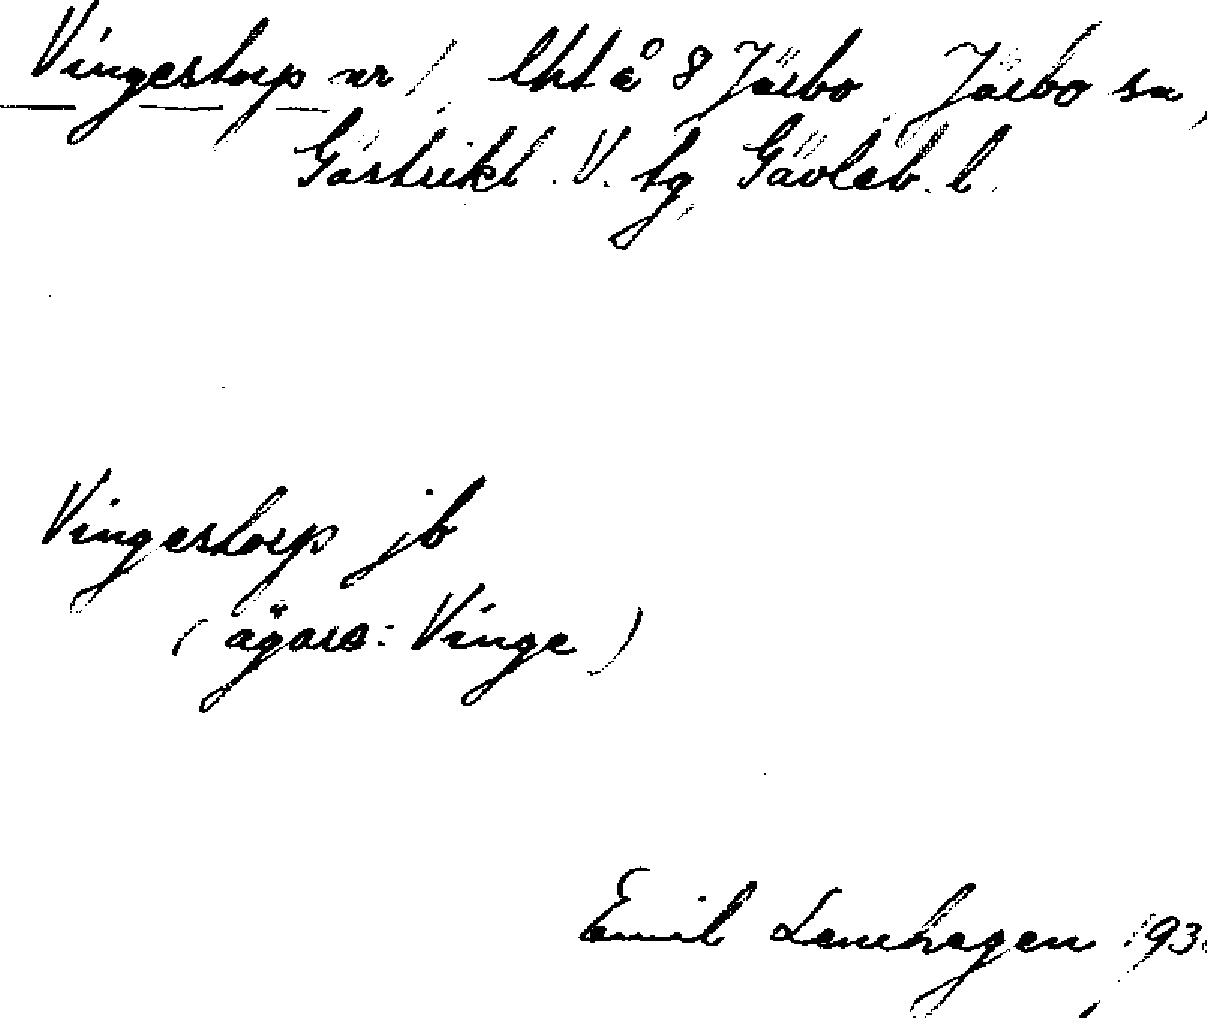 Vingestorp nr 1, lht å 8 Järbo Järbo sn,
Gästrikl. V. tg, Gävleb. l.
Vingestorp jb
(ägare: Vinge)
Emil Lenehagen 193